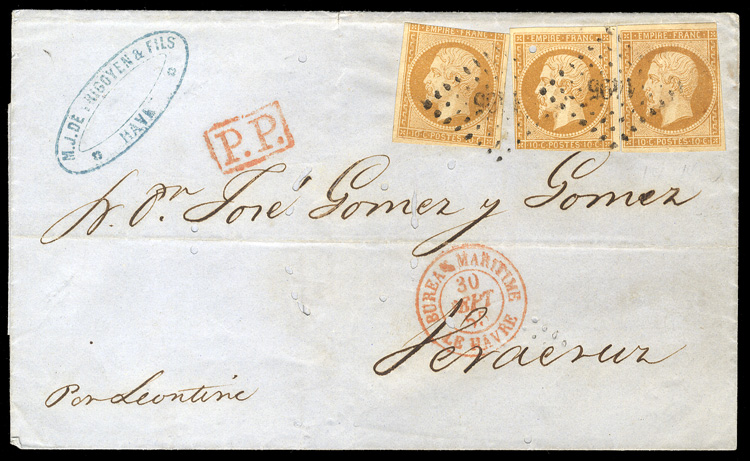 M.J. DE YRIGOYEN & FILS
HAVRE
P.P.
EMPIRE FRANC
10 C. POSTES 10 C.
EMPIRE FRANC
10 C. POSTES 10 C.
EMPIRE FRANC
10 C. POSTES 10 C.
1495
José Gomez y Gomez
BUREAU MARITIME
30
SEPT
LE HAVRE
Veracruz
Por Leontine